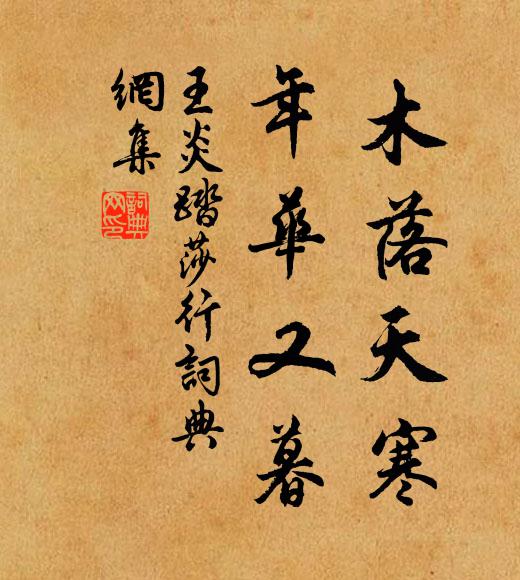 木落天寒
年華又暮
王炎踏莎行詞典
網集
詞典
网印